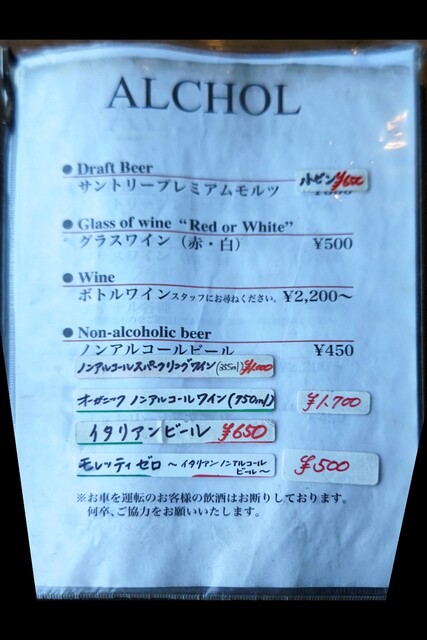 ALCHOL
● Draft Beer
サントリープレミアムモルツ 小ビン ¥600
● Glass of wine “Red or White”
グラスワイン（赤・白） ¥500
● Wine
ボトルワインスタッフにお尋ねください。 ¥2,200～
● Non-alcoholic beer
ノンアルコールビール ¥450
ノンアルコールスパークリングワイン(355ml) ¥1.000
オーガニック ノンアルコールワイン(750ml) ¥1.700
イタリアンビール ¥650
モレッティゼロ ～イタリアンノンアルコール
ビール～ ¥500
※お車を運転のお客様の飲酒はお断りしております。
何卒、ご協力をお願いいたします。